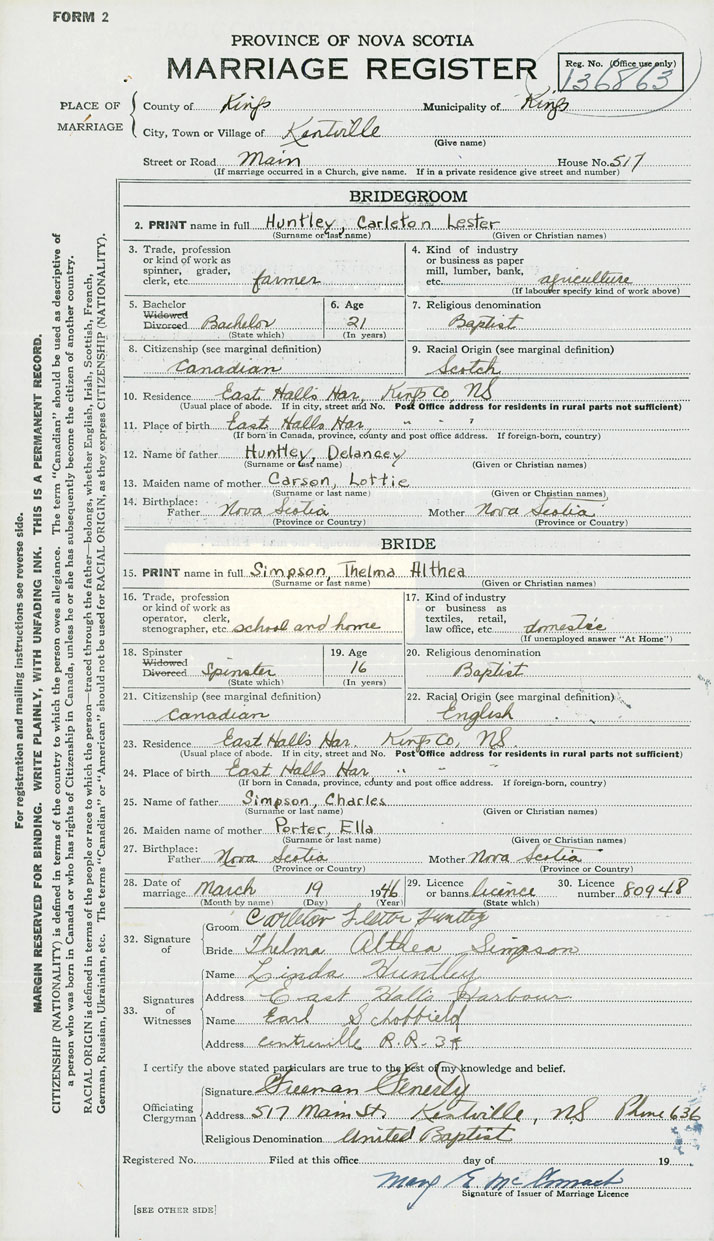 FORM 2
PROVINCE OF NOVA SCOTIA
MARRIAGE REGISTER
Reg. No. (Office use only)
136863
PLACE OF MARRIAGE
County of Kings Municipality of Kings
City, Town or Village of Kentville
(Give name)
Street or Road Main House No. 517
(If marriage occurred in a Church, give name. If in a private residence give street and number)
BRIDEGROOM
2. PRINT name in full Huntley, Carleton Lester
(Surname or last name) (Given or Christian names)
3. Trade, profession or kind of work as spinner, grader, clerk, etc farmer
4. Kind of industry or business as paper mill, lumber, bank, etc. agriculture
(If labourer specify kind of work above)
5. Bachelor Widowed Divorced Bachelor
(State which)
6. Age 21
(In years)
7. Religious denomination
Baptist
8. Citizenship (see marginal definition)
Canadian
9. Racial Origin (see marginal definition)
Scotch
10. Residence East Halls Har, Kings Co, NS
(Usual place of abode. If in city, street and No. Post Office address for residents in rural parts not sufficient)
11. Place of birth East Halls Har, " " "
(If born in Canada, province, county and post office address. If foreign-born, country)
12. Name of father Huntley, Delancey
(Surname or last name) (Given or Christian names)
13. Maiden name of mother Carson, Lottie
(Surname or last name) (Given or Christian names)
14. Birthplace: Father Nova Scotia Mother Nova Scotia
(Province or Country) (Province or Country)
BRIDE
15. PRINT name in full Simpson, Thelma Althea
(Surname or last name) (Given or Christian names)
16. Trade, profession or kind of work as operator, clerk, stenographer, etc school and home
17. Kind of industry or business as textiles, retail, law office, etc domestic
(If unemployed answer "At Home")
18. Spinster Widowed Divorced Spinster
(State which)
19. Age 16
(In years)
20. Religious denomination
Baptist
21. Citizenship (see marginal definition)
Canadian
22. Racial Origin (see marginal definition)
English
23. Residence East Halls Har. Kings Co, NS.
(Usual place of abode. If in city, street and No. Post Office address for residents in rural parts not sufficient)
24. Place of birth East Halls Har, " " "
(If born in Canada, province, county and post office address. If foreign-born, country)
25. Name of father Simpson, Charles
(Surname or last name) (Given or Christian names)
26. Maiden name of mother Porter, Ella
(Surname or last name) (Given or Christian names)
27. Birthplace: Father Nova Scotia Mother Nova Scotia
(Province or Country) (Province or Country)
28. Date of marriage March 19 1946
(Month by name) (Day) (Year)
29. Licence or banns licence
(State which)
30. Licence number 80948
32. Signature of
Groom Carleton Lester Huntley
Bride Thelma Althea Simpson
33. Signatures of Witnesses
Name Linda Huntley
Address East Halls Harbour
Name Earl Schofield
Address Centreville R.R. 3
I certify the above stated particulars are true to the best of my knowledge and belief.
Officiating Clergyman
Signature Freeman
Address 517 Main St. Kentville, NS Phone 636
Religious Denomination United Baptist
Registered No. Filed at this office day of 19
Mary E. McCormack
Signature of Issuer of Marriage Licence
[SEE OTHER SIDE]
For registration and mailing instructions see reverse side.
MARGIN RESERVED FOR BINDING. WRITE PLAINLY, WITH UNFADING INK. THIS IS A PERMANENT RECORD.
CITIZENSHIP (NATIONALITY) is defined in terms of the country to which the person owes allegiance. The term "Canadian" should be used as descriptive of
a person who was born in Canada or who has rights of Citizenship in Canada, unless he or she has subsequently become the citizen of another country.
RACIAL ORIGIN is defined in terms of the people or race to which the person—traced through the father—belongs, whether English, Irish, Scottish, French,
German, Russian, Ukrainian, etc. The terms "Canadian" or "American" should not be used for RACIAL ORIGIN, as they express CITIZENSHIP (NATIONALITY).